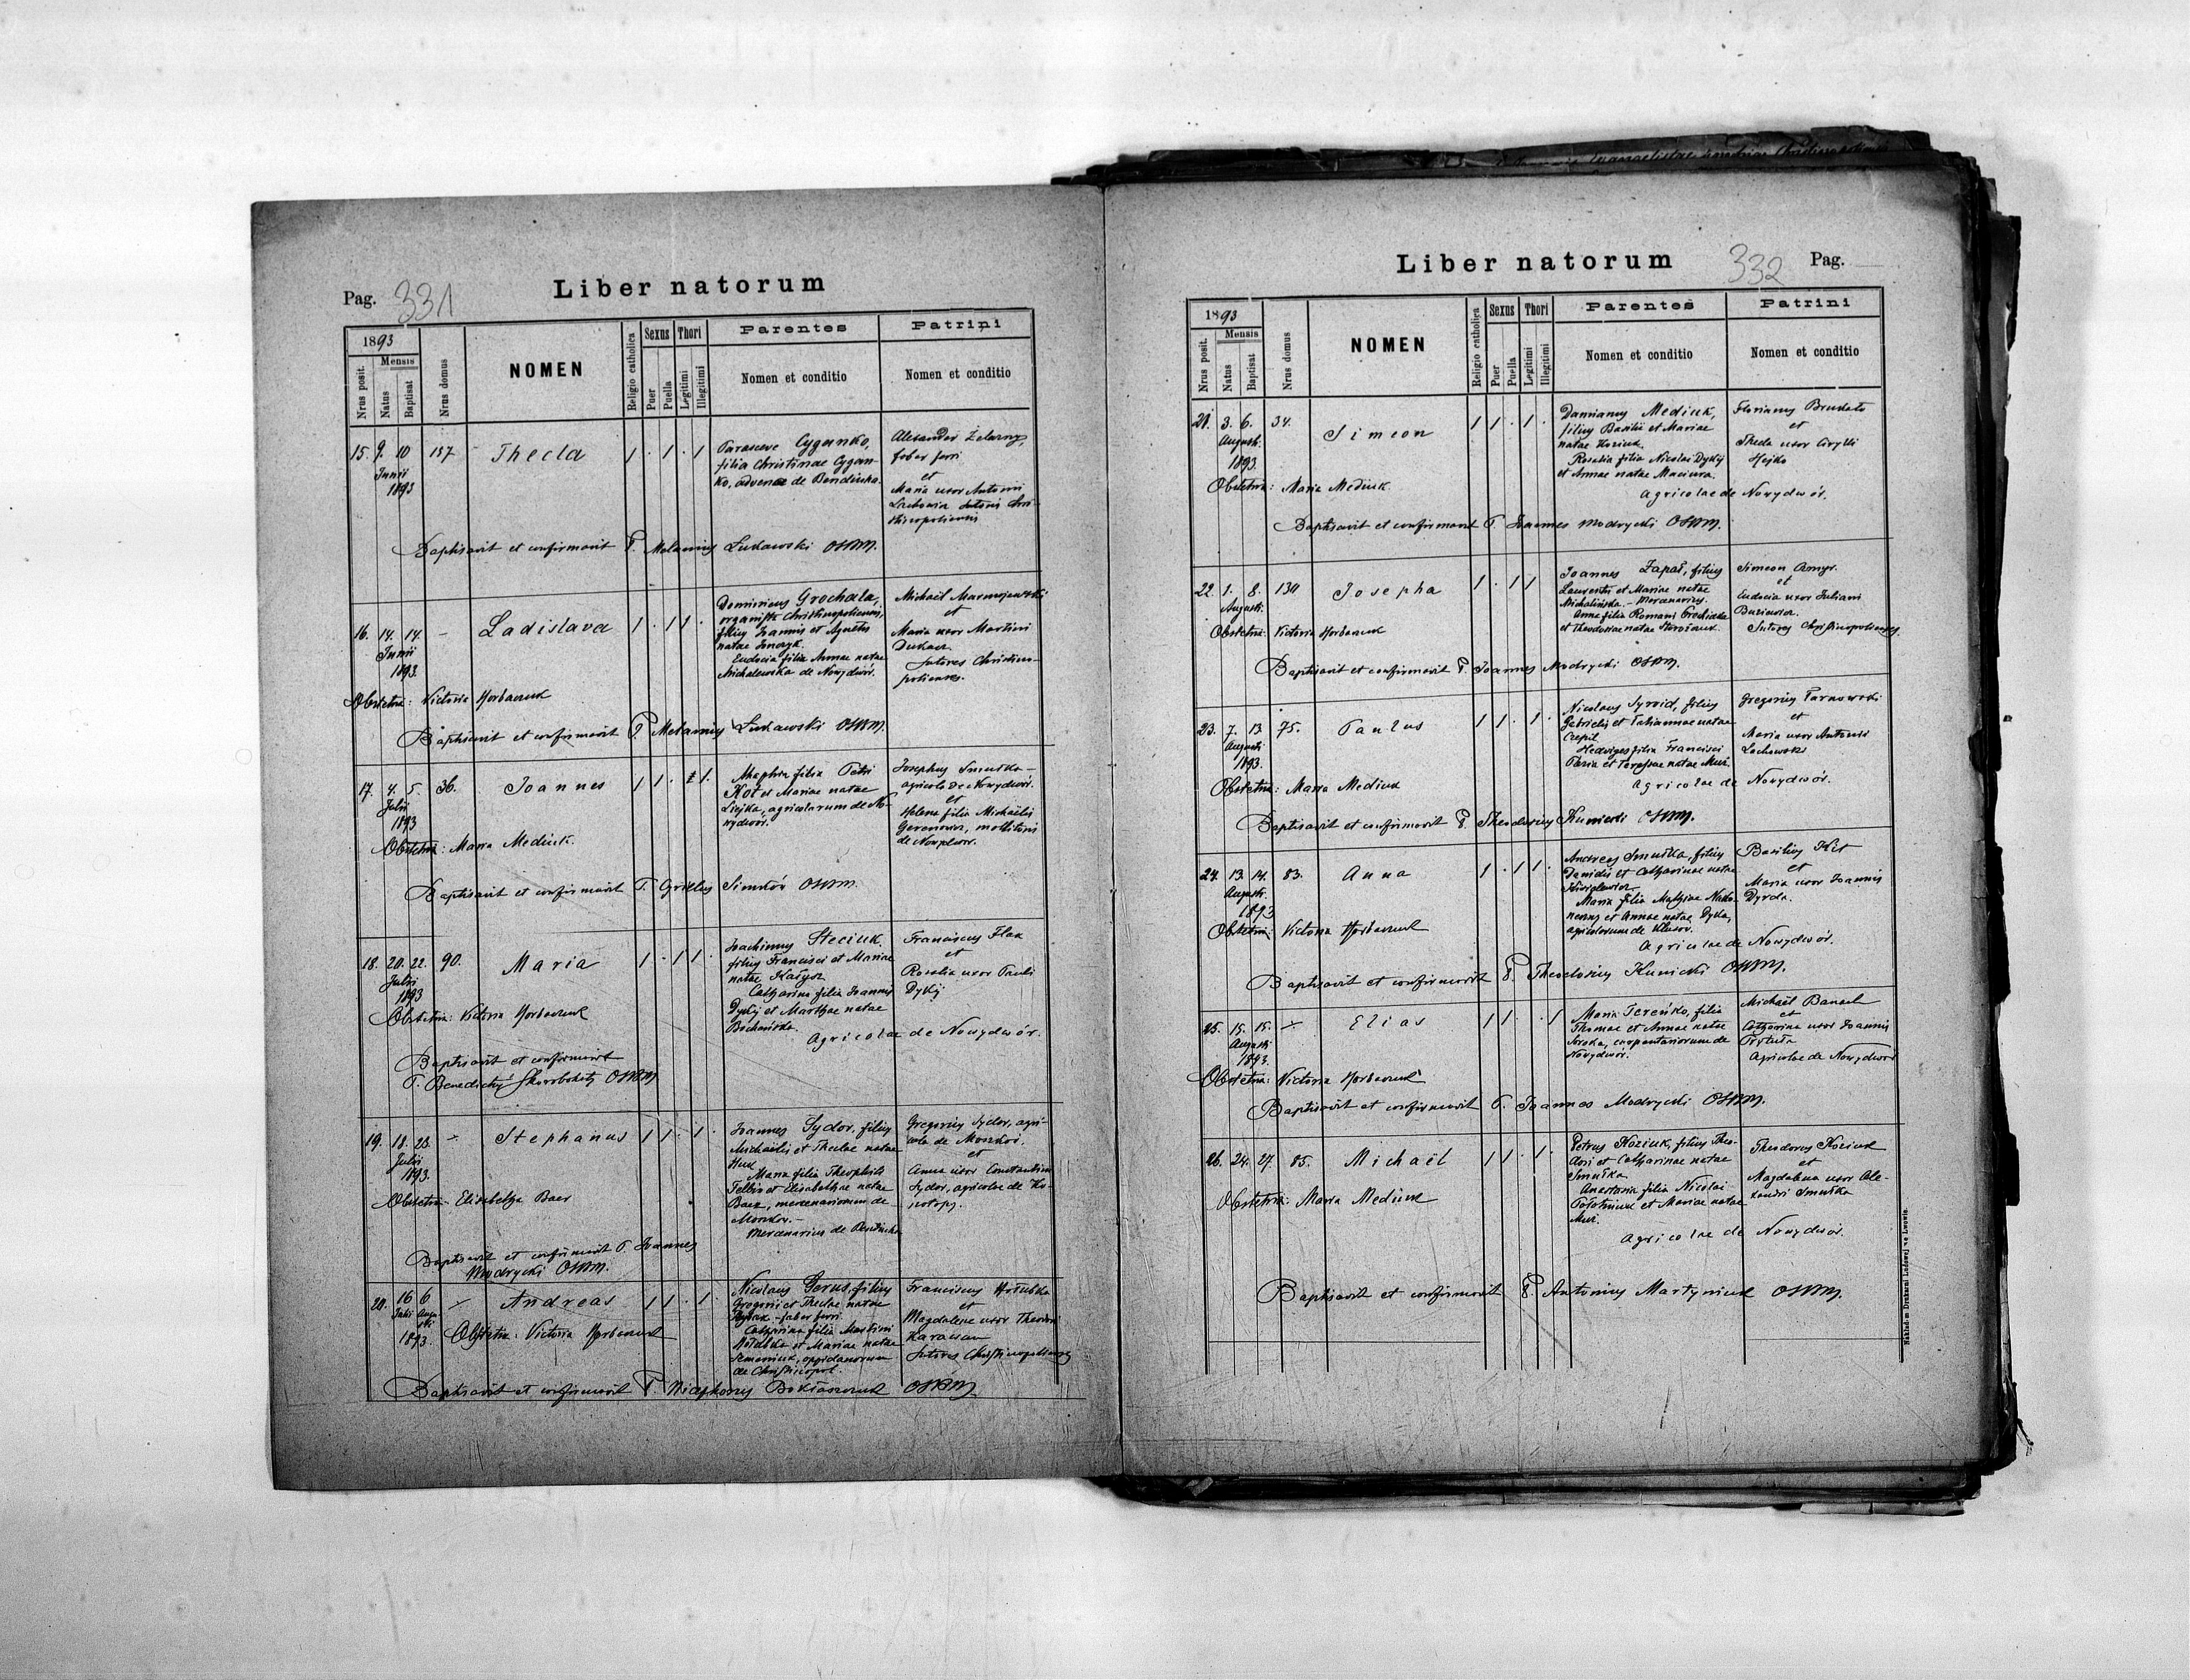 Pag. 331
Liber natorum
1893
Mensis
Nrus posit.
Natus
Baptisat
Nrus domus
NOMEN
Religio catholica
Sexus
Puer
Puella
Thori
Legitimi
Illegitimi
Parentes
Nomen et conditio
Patrini
Nomen et conditio
15. 9. 10 157 Thecla 1 . 1 . 1
Junii
1893
Parasceve Cyganko,
filia Christinae Cygan-
ko, advenae de Bendiuha.
Alexander Żelazny,
faber ferri
et
Maria uxor Antonii
Baptisavit et confirmavit P. Melanius Łukawski OSBM.
16. 14. 14. - Ladislava 1 . 1 1 .
Junii
1893.
Dominicus Grochala,
organista Christinopoliensis,
filius Joannis et Agnetis
natae
Eudocia filia Annae natae
Michalewska de Nowydwór.
Michaël
et
Maria uxor Martini
Sutores Christino-
polienses.
Obstetrix: Victoria Horbaczuk
Baptisavit et confirmavit P. Melanius Łukawski OSBM.
17. 4. 5. 36. Joannes 1 1 . 1.
Julii
1893
filia Petri
Kot et Mariae natae
agricolarum de No-
wydwór.
Josephus Smutka -
agricola de Nowydwór.
et
Helena filia Michaëlis
molitoris
de Nowydwór.
Obstetrix: Maria Mediuk.
Baptisavit et confirmavit P. OSBM.
18. 20. 22. 90. Maria 1 . 1 1 .
Julii
1893
Joachimus Steciuk
filius Francisci et Mariae
natae
Catharina filia Joannis
Dykij et Marthae natae
Agricolae de Nowydwór.
Franciscus Flak
et
Rosalia uxor Pauli
Dykij
Obstetrix: Victoria Horbaczuk
Baptisavit et confirmavit
P. Benedictus OSBM
19. 18. 23. - Stephanus 1 1 . 1 .
Julii
1893.
Joannes Sydor, filius
Michaëlis et Theclae natae
Huk
Maria filia Theophili
et Elisabethae natae
Baer, mercenariorum de
Moszkow. -
Mercenarius de Bendiuha
Gregorius Sydor, agri-
cola de Moszków.
et
Anna uxor Constantini
Sydor, agricolae de Ko-
notopy.
Obstetrix: Elisabetha Baer
Baptisavit et confirmavit P. Joannes
Modrycki OSBM.
20. 16 6 - Andreas 1 1 . 1 .
Julii Augu-
sti
1893.
Nicolaus Gerus, filius
Gregorii et Theclae natae
faber ferri.
Catharina filia Martini
et Mariae natae
oppidanorum
de Christinopol.
Franciscus
et
Magdalena uxor Theodori
Sutores Christinopolienses
Obstetrix: Victoria Horbaczuk
Baptisavit et confirmavit P. OSBM
Liber natorum
332 Pag.
1893
Mensis
Nrus posit.
Natus
Baptisat
Nrus domus
NOMEN
Religio catholica
Sexus
Puer
Puella
Thori
Legitimi
Illegitimi
Parentes
Nomen et conditio
Patrini
Nomen et conditio
21. 3. 6. 34. Simeon 1 1 . 1 .
Augusti.
1893.
Damianus Mediuk,
filius Basilii et Mariae
natae Koziuk.
Rosalia filia Nicolai Dykij
et Annae natae Maciura.
Agricolae de Nowydwór.
Florianus
et
Thecla uxor Cyrilli
Hejko
Obstetrix: Maria Mediuk.
Baptisavit et confirmavit P. Joannes Modrycki OSBM.
22. 1. 8. 130 Josepha 1 . 1 1
Augusti.
Joannes Zapał, filius
Laurentii et Mariae natae
Michalińska - Mercenarius.
Anna filia Romani
et Theodosiae natae
Simeon
et
Eudocia uxor Juliani
Sutores Christinopolienses
Obstetrix: Victoria Horbaczuk
Baptisavit et confirmavit P. Joannes Modrycki OSBM.
23. 7. 13. 75. Paulus 1 1 . 1 .
Augusti
1893.
Nicolaus Syroid, filius
Gabrielis et Tatiannae natae
Czepil
Hedviges filia Francisci
et natae Mus.
Agricolae de Nowydwór.
Gregorius Tarnowski
et
Maria uxor Antonii
Lachowski
Obstetrix: Maria Mediuk
Baptisavit et confirmavit P. Theodosius Kunicki OSBM.
24. 13. 14. 83. Anna 1 . 1 1 .
Augusti.
1893
Andreas Smutka, filius
Demidis et Catharinae natae
Maria filia Mathiae
et Annae natae Dyka,
agricolarum de Klusów.
Agricolae de Nowydwór.
Basilius Kit
et
Maria uxor Joannis
Dyrda.
Obstetrix: Victoria Horbaczuk
Baptisavit et confirmavit P. Theodosius Kunicki OSBM.
25. 15. 15. - Elias 1 1 . . 1
Augusti
1893.
Maria Tereńko, filia
Thomae et Annae natae
Sroka, carpentariorum de
Nowydwór.
Michaël Banach
et
Catharina uxor Joannis
Prytuła
Agricolae de Nowydwór
Obstetrix: Victoria Horbaczuk
Baptisavit et confirmavit P. Joannes Modrycki OSBM.
26. 24. 27. 85. Michaël 1 1 . 1 .
Petrus Koziuk, filius Theo-
dori et Catharinae natae
Smutka
Anastasia filia Nicolai
et Mariae natae
Mus.
Agricolae de Nowydwór.
Theodorus Koziuk
et
Magdalena uxor Ale-
xandri Smutka
Obstetrix: Maria Mediuk
Baptisavit et confirmavit P. Antonius Martyniuk OSBM.
Nakładem Drukarni Ludowej we Lwowie.